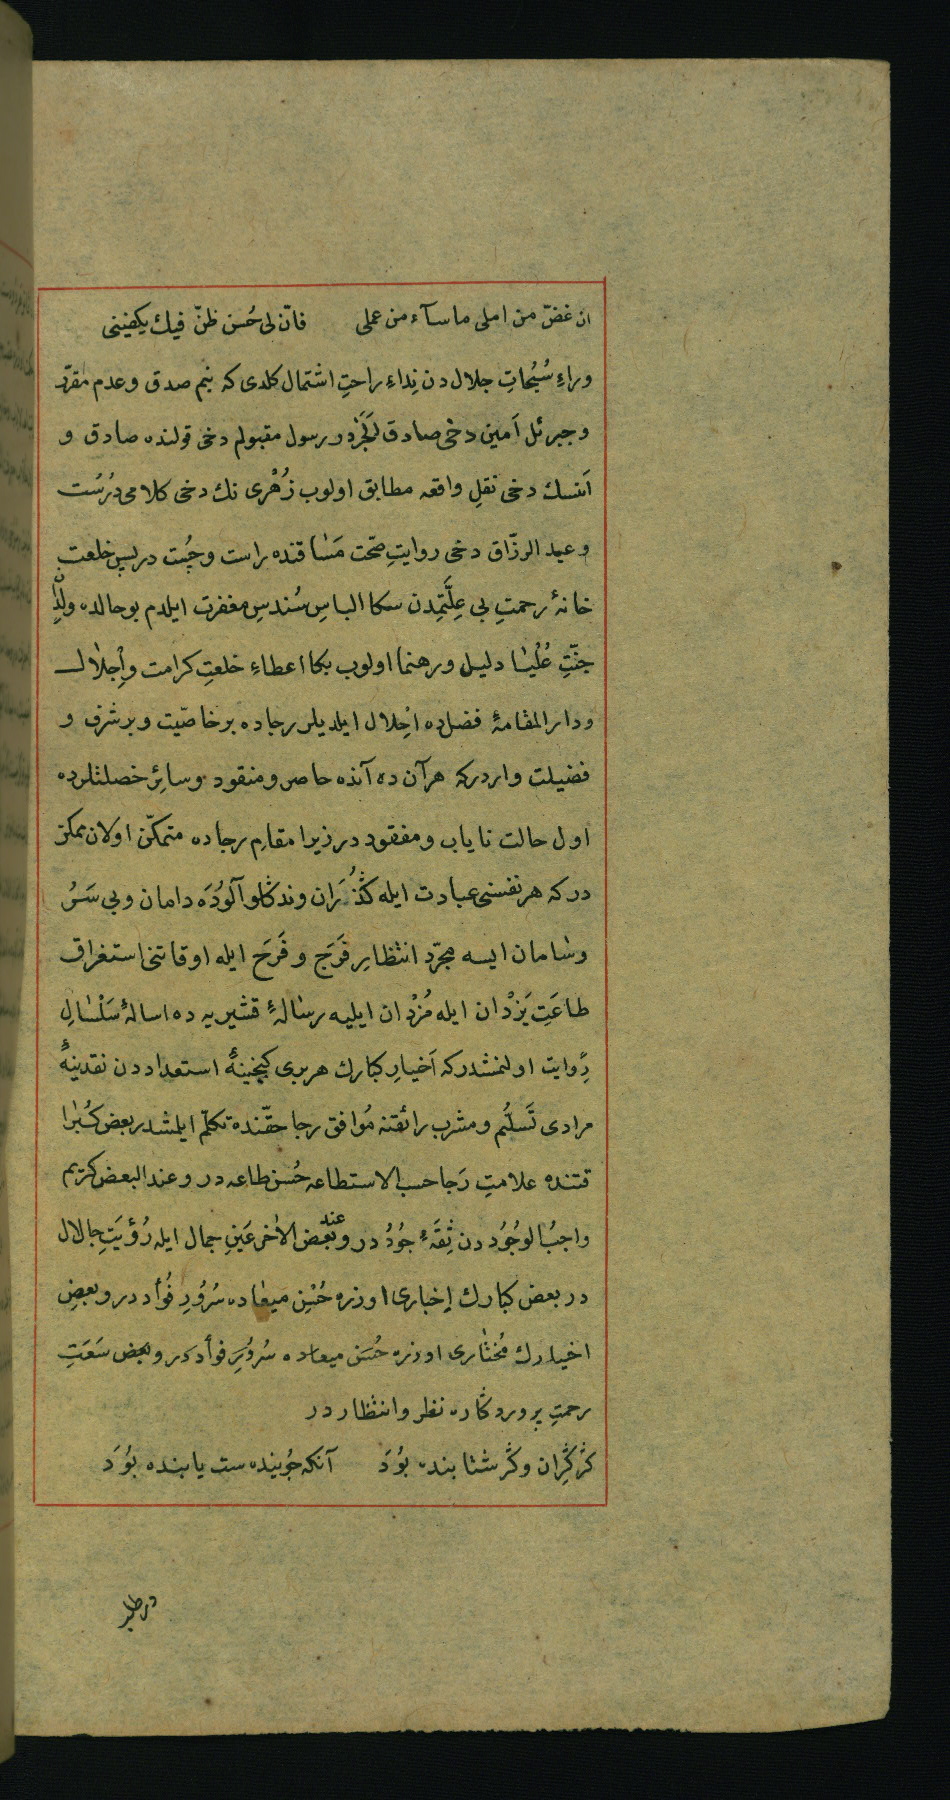 ان غضّ من املى ما سآء من عملى فانّ لى حُسن ظنّ فيك يكفينى
وراءِ سُبُحاتِ جلال دن نِداءِ راحتِ اشتمال كلدى كه بنم صدق وعدم مقرّر
وجبرئل اَمين دخى صادق الخبر ورسول مقبولم دخى قولنده صادق و
اَنسك دخى نقلِ واقعه مطابق اولوب زُهْرى نك دخى كلامى دُرُست
وعبد الرزّاق دخى روايتِ صحّت مَسٰاقنده راست وچُست در پس خلعت
خانۀ رحمتِ بى علّتمِدن سكا الباسِ سُندسِ مغفرت ايلدم بو حالده ولدٰانِ
جنّتِ عُلْيٰا دليل ورهنما اولوب بكا اعطاءِ خلعتِ كرامت واِجلال
ودار المقامۀ فضل ده اِحْلال ايلديلر رجاده بر خاصّيت وبر شرف و
فضيلت واردركه هر آن ده آنده حاصر ومنقود وسائِر خصلتلرده
اول حالت ناياب ومفقود در زيرا مقامِ رجاده متمكّن اولان ممكن
دركه هر نفسنى عبادت ايله گُذَران
وسٰامان ايسه مجرّد انتظارِ فَرَج وفَرَح ايله اوقاتنى استغراقِ
طاعَتِ يَزْدٰان ايله مُزْدٰان ايليه رسٰالۀ قشيريه ده اسالۀ سَلْسٰالِ
رِوايت اولنمشدركه اَخيارِ كبارك هر برى گنجينۀ استعداددن نقدينۀ
مرادى تَسَلُّم ومشرب رائقنه مُوافق رجا حقّنده تكلّم ايلمشدر بعض كُبَرا
قتنده علامتِ رَجا حسب الاستطاعه حُسن طاعه در وعند البعض كريم
واجبُ الوجُود دن ثِقَۀ جُودُ در وعند بعض الاٰخر عَينِ جمال ايله رُؤيَتِ جلال
در بعض كبارك اِخبارى اوزره حُسْنِ ميعٰاده سُرُورِ فُؤاد در وبعضِ
اخيارك مُختٰارى اوزره حُسَن ميعاده سُرُورِ فوأد در وبعض سَعَتِ
رحمتِ پروردگاره نظر وانتظار در
گر گِران وگر شتابنده بُوَد آنكه جُوينده ست يابنده بُوَد
در طلب